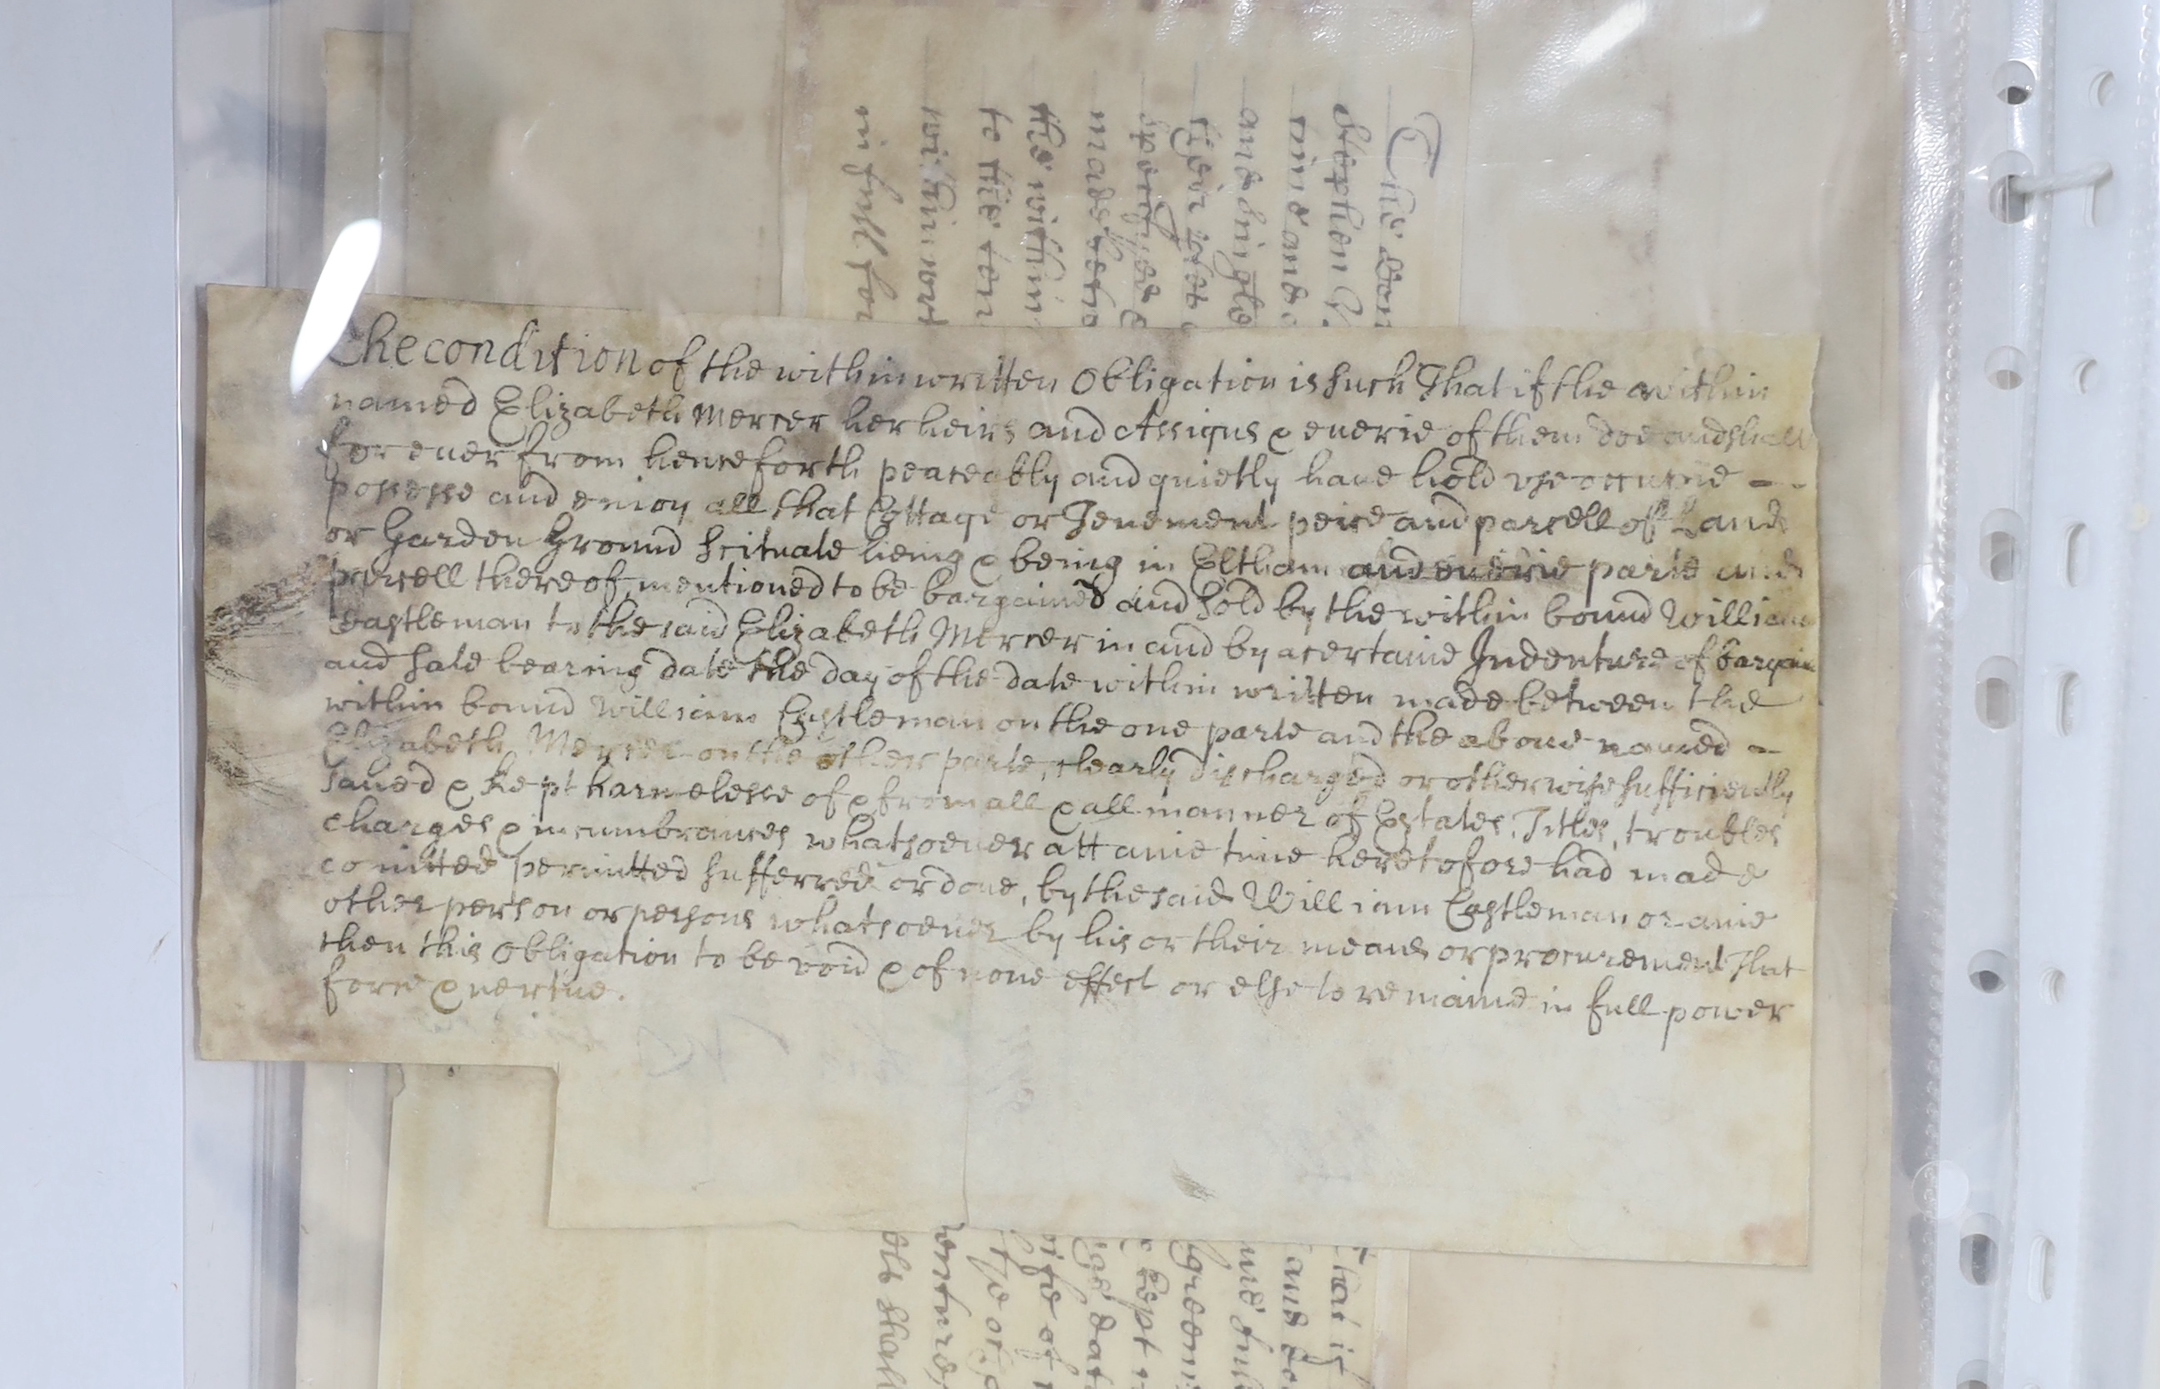 The condition of the within written Obligation is such That if the within
named Elizabeth Mercer her heirs and Assigns & euerie of them doe and shall
for euer from henceforth peaceably and quietly haue hold vse occupie
possesse and enioy all that Cottage or Tenement peice and parcell of Land
or Garden Ground scituate lieing & being in Eltham and euerie parte and
parcell thereof, mentioned to be bargained and sold by the within bound William
Castleman to the said Elizabeth Mercer in and by a certaine Indenture of bargaine
and sale bearing date the day of the date within written made betweene the
within bound William Castleman on the one parte and the aboue named
Elizabeth Mercer on the other parte, clearly discharged or otherwise sufficiently
saued & kept harmelesse of & from all & all manner of Estates, Titles, troubles
charges & incumbrances whatsoeuer att anie time heretofore had made
comitted permitted suffered or done, by the said William Castleman or anie
other person or persons whatsoeuer by his or their meanes or procurement That
then this Obligation to be void & of none effect or else to remaine in full power
force & vertue.
The con
Stephen
and single
their
made
the within
to the
within
in full
That is
and
kept
date
wife of
shall